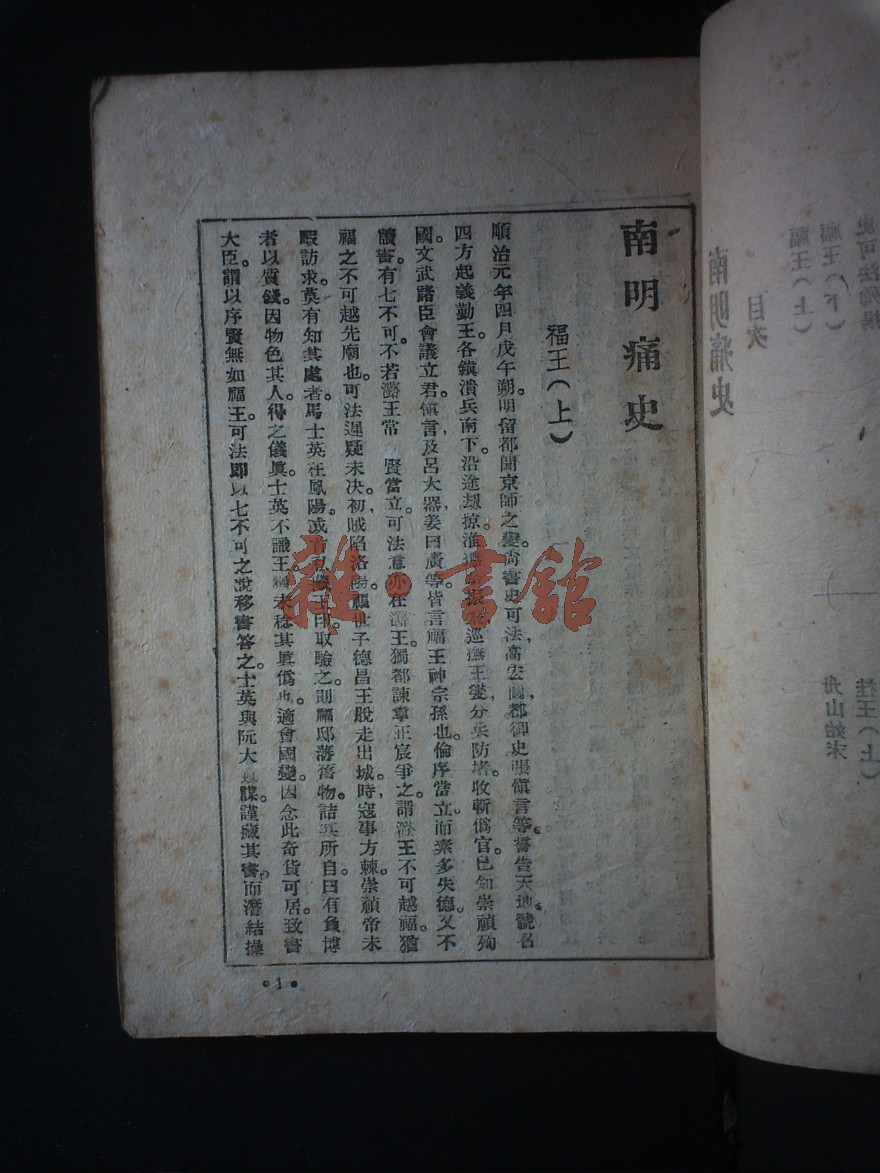 南明痛史
福王(上)
順治元年四月戊午朔明留都聞京師之變尙書史可法高宏圖都御史張愼言等誓告天地號名
四方起義勤王各鎭潰兵南下沿途刼掠淮巡撫王燮分柴防堵收斬僞官已知崇禎殉
國文武諸臣會議立君愼言及呂大器姜曰廣等皆言福王神宗孫也倫序當立而素多失德又不
讀書有七不可不若潞王常 賢當立可法意亦在潞王獨都諫章正宸爭之謂潞王不可越福猶
福之不可越先廟也可法遲疑未决初賊陷洛陽福世子德昌王脫走出城時寇事方棘崇禎帝未
暇訪求莫有知其處者馬士英在鳳陽或王印取驗之則福邸藩舊物詰其所自曰有負博
者以質錢因物色其人得之儀眞士英不識王未稔其眞僞也適會國變因念此奇貨可居致書
大臣謂以序賢無如福王可法卽以七不可之說移書答之士英與阮大謀謹藏其書而潛結操
1
雜·書館
南明痛史
目次
福王(上)
福王(下)
史可法殉揚
桂王(上)
舟山始末